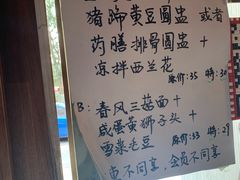 猪蹄黄豆圆盅 或者
药膳排骨圆盅 +
凉拌西兰花
原价:35 特:30
B: 春风三菇面 +
咸蛋黄狮子头 +
雪菜毛豆
原价:33 特:29
不同享,会员不同享